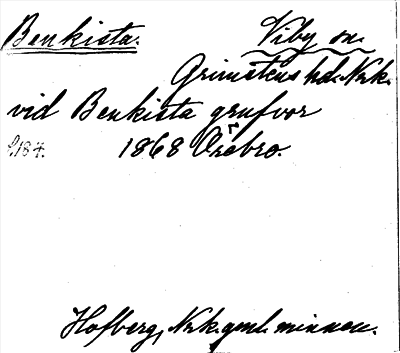 Benkista. Viby sn.
Grimstens hd. Nrk.
vid Benkista grufvor
s. 184. 1868 Örebro.
Hofberg, Nrk. gml. minnen.